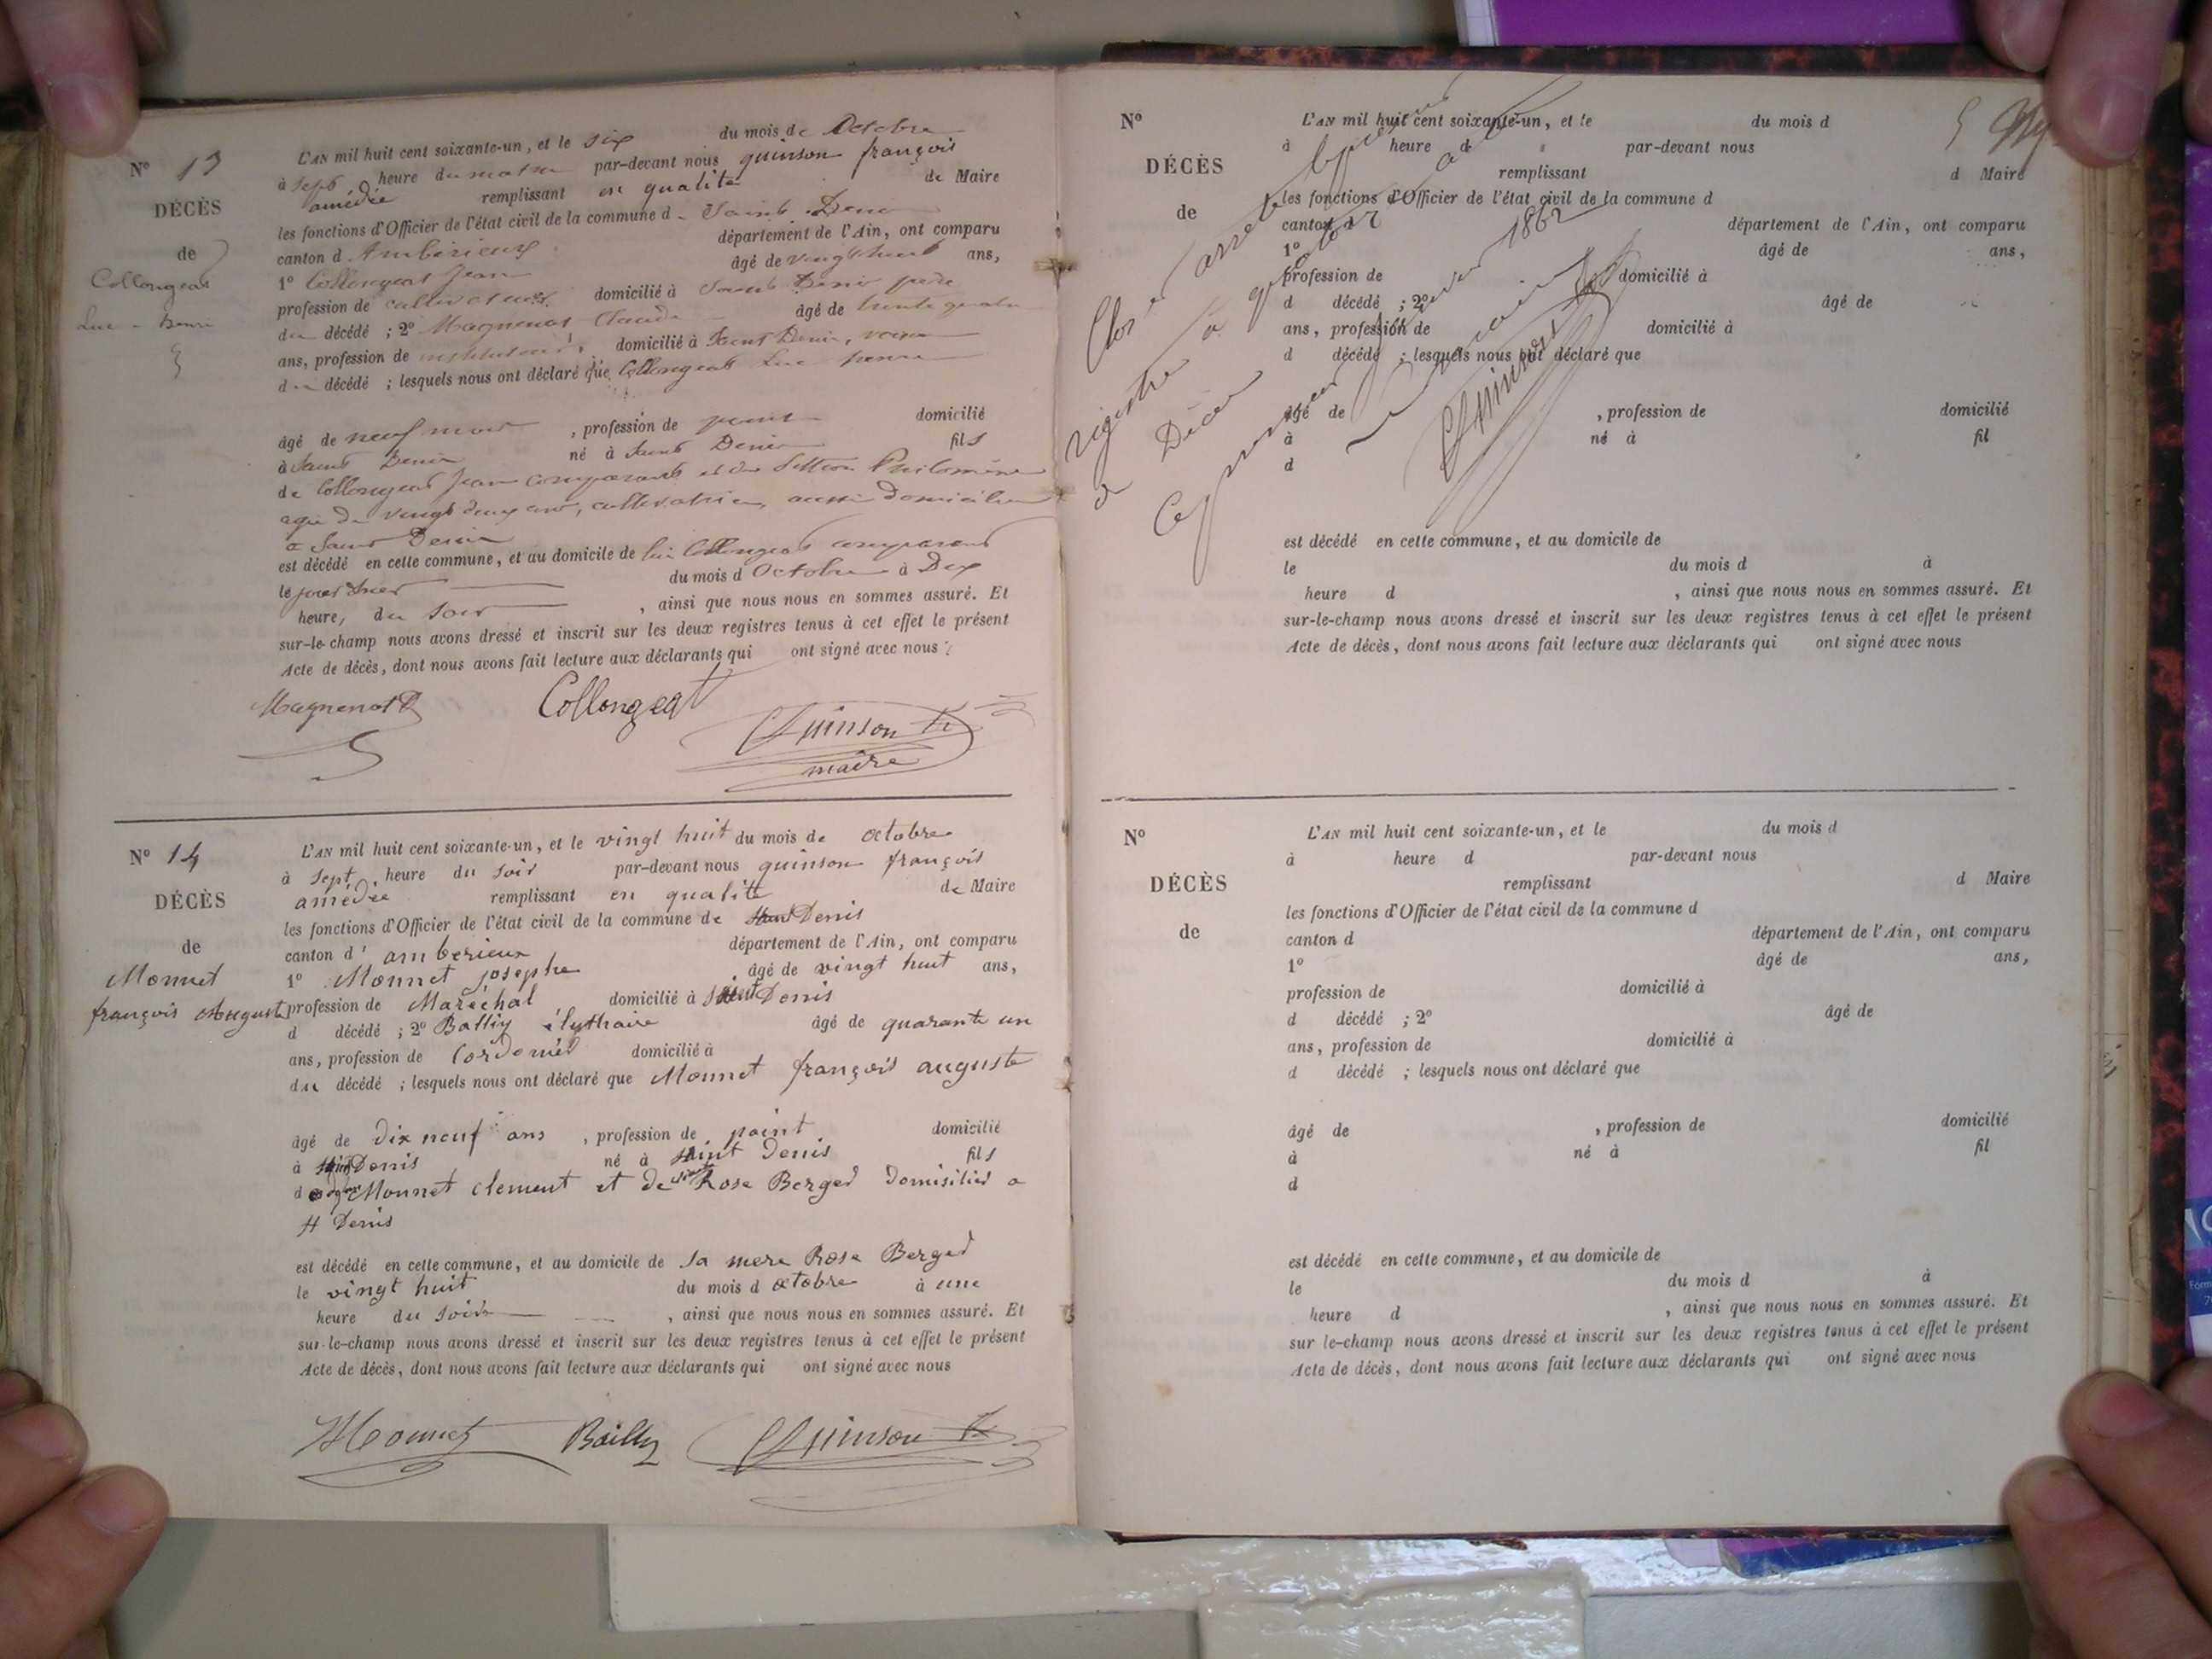 N° 13
DÉCÈS
de
Collongeat
Luc - Henri
L'AN mil huit cent soixante-un, et le six du mois de Octobre
à sept heure du matin par-devant nous quinson françois
amédée remplissant en qualité de Maire
les fonctions d'Officier de l'état civil de la commune d Saint Denis
canton d Ambérieux département de l'Ain, ont comparu
1° Collongeat Jean âgé de vingt huit ans,
profession de cultivateur domicilié à Saint Denis père
du décédé ; 2° Magnenot Claude âgé de trente quatre
ans, profession de instituteur, domicilié à Saint Denis, voisin
du décédé ; lesquels nous ont déclaré que Collongeat Luc henri
âgé de neuf mois , profession de point domicilié
à Saint Denis né à Saint Denis fils
de Collongeat Jean comparant et de Philomène
agée de vingt deux ans, cultivatrice, aussi domiciliée
a Saint Denis
est décédé en cette commune, et au domicile de lui Collongeat comparant
le jour d'hier du mois d Octobre à Dix
heure, du soir , ainsi que nous nous en sommes assuré. Et
sur-le-champ nous avons dressé et inscrit sur les deux registres tenus à cet effet le présent
Acte de décès, dont nous avons fait lecture aux déclarants qui ont signé avec nous
Magnenot Collongeat
Quinson
maire
N° 14
DÉCÈS
de
Monnet
françois Auguste
L'AN mil huit cent soixante-un, et le vingt huit du mois de octobre
à sept heure du soir par-devant nous quinson françois
amédée remplissant en qualité de Maire
les fonctions d'Officier de l'état civil de la commune de Denis
canton d' amberieux département de l'Ain, ont comparu
1° Monnet josephe âgé de vingt huit ans,
profession de Maréchal domicilié à saint Denis
d décédé ; 2° Bailly élythaire âgé de quarante un
ans, profession de Cordonier domicilié à
du décédé ; lesquels nous ont déclaré que Monnet françois auguste
âgé de dix neuf ans , profession de point domicilié
à saint Denis né à saint Denis fils
d Monnet clement et de Rose Berger domisilier a
st Denis
est décédé en cette commune, et au domicile de sa mere Rose Berger
le vingt huit du mois d octobre à une
heure du soir , ainsi que nous nous en sommes assuré. Et
sur-le-champ nous avons dressé et inscrit sur les deux registres tenus à cet effet le présent
Acte de décès, dont nous avons fait lecture aux déclarants qui ont signé avec nous
Monnet Bailly Quinson
N°
DÉCÈS
de
L'AN mil huit cent soixante-un, et le du mois d
à heure d par-devant nous
remplissant d Maire
les fonctions d'Officier de l'état civil de la commune d
canton d département de l'Ain, ont comparu
1° âgé de ans,
profession de domicilié à
d décédé ; 2° âgé de
ans, profession de domicilié à
d décédé ; lesquels nous ont déclaré que
âgé de , profession de domicilié
à né à fil
d
est décédé en cette commune, et au domicile de
le du mois d à
heure d , ainsi que nous nous en sommes assuré. Et
sur-le-champ nous avons dressé et inscrit sur les deux registres tenus à cet effet le présent
Acte de décès, dont nous avons fait lecture aux déclarants qui ont signé avec nous
Clos et arreté le present
registre a quatorze actes
de Décès
Ce premier janvier 1862
Le maire
Quinson
N°
DÉCÈS
de
L'AN mil huit cent soixante-un, et le du mois d
à heure d par-devant nous
remplissant d Maire
les fonctions d'Officier de l'état civil de la commune d
canton d département de l'Ain, ont comparu
1° âgé de ans,
profession de domicilié à
d décédé ; 2° âgé de
ans, profession de domicilié à
d décédé ; lesquels nous ont déclaré que
âgé de , profession de domicilié
à né à fil
d
est décédé en cette commune, et au domicile de
le du mois d à
heure d , ainsi que nous nous en sommes assuré. Et
sur le-champ nous avons dressé et inscrit sur les deux registres tenus à cet effet le présent
Acte de décès, dont nous avons fait lecture aux déclarants qui ont signé avec nous